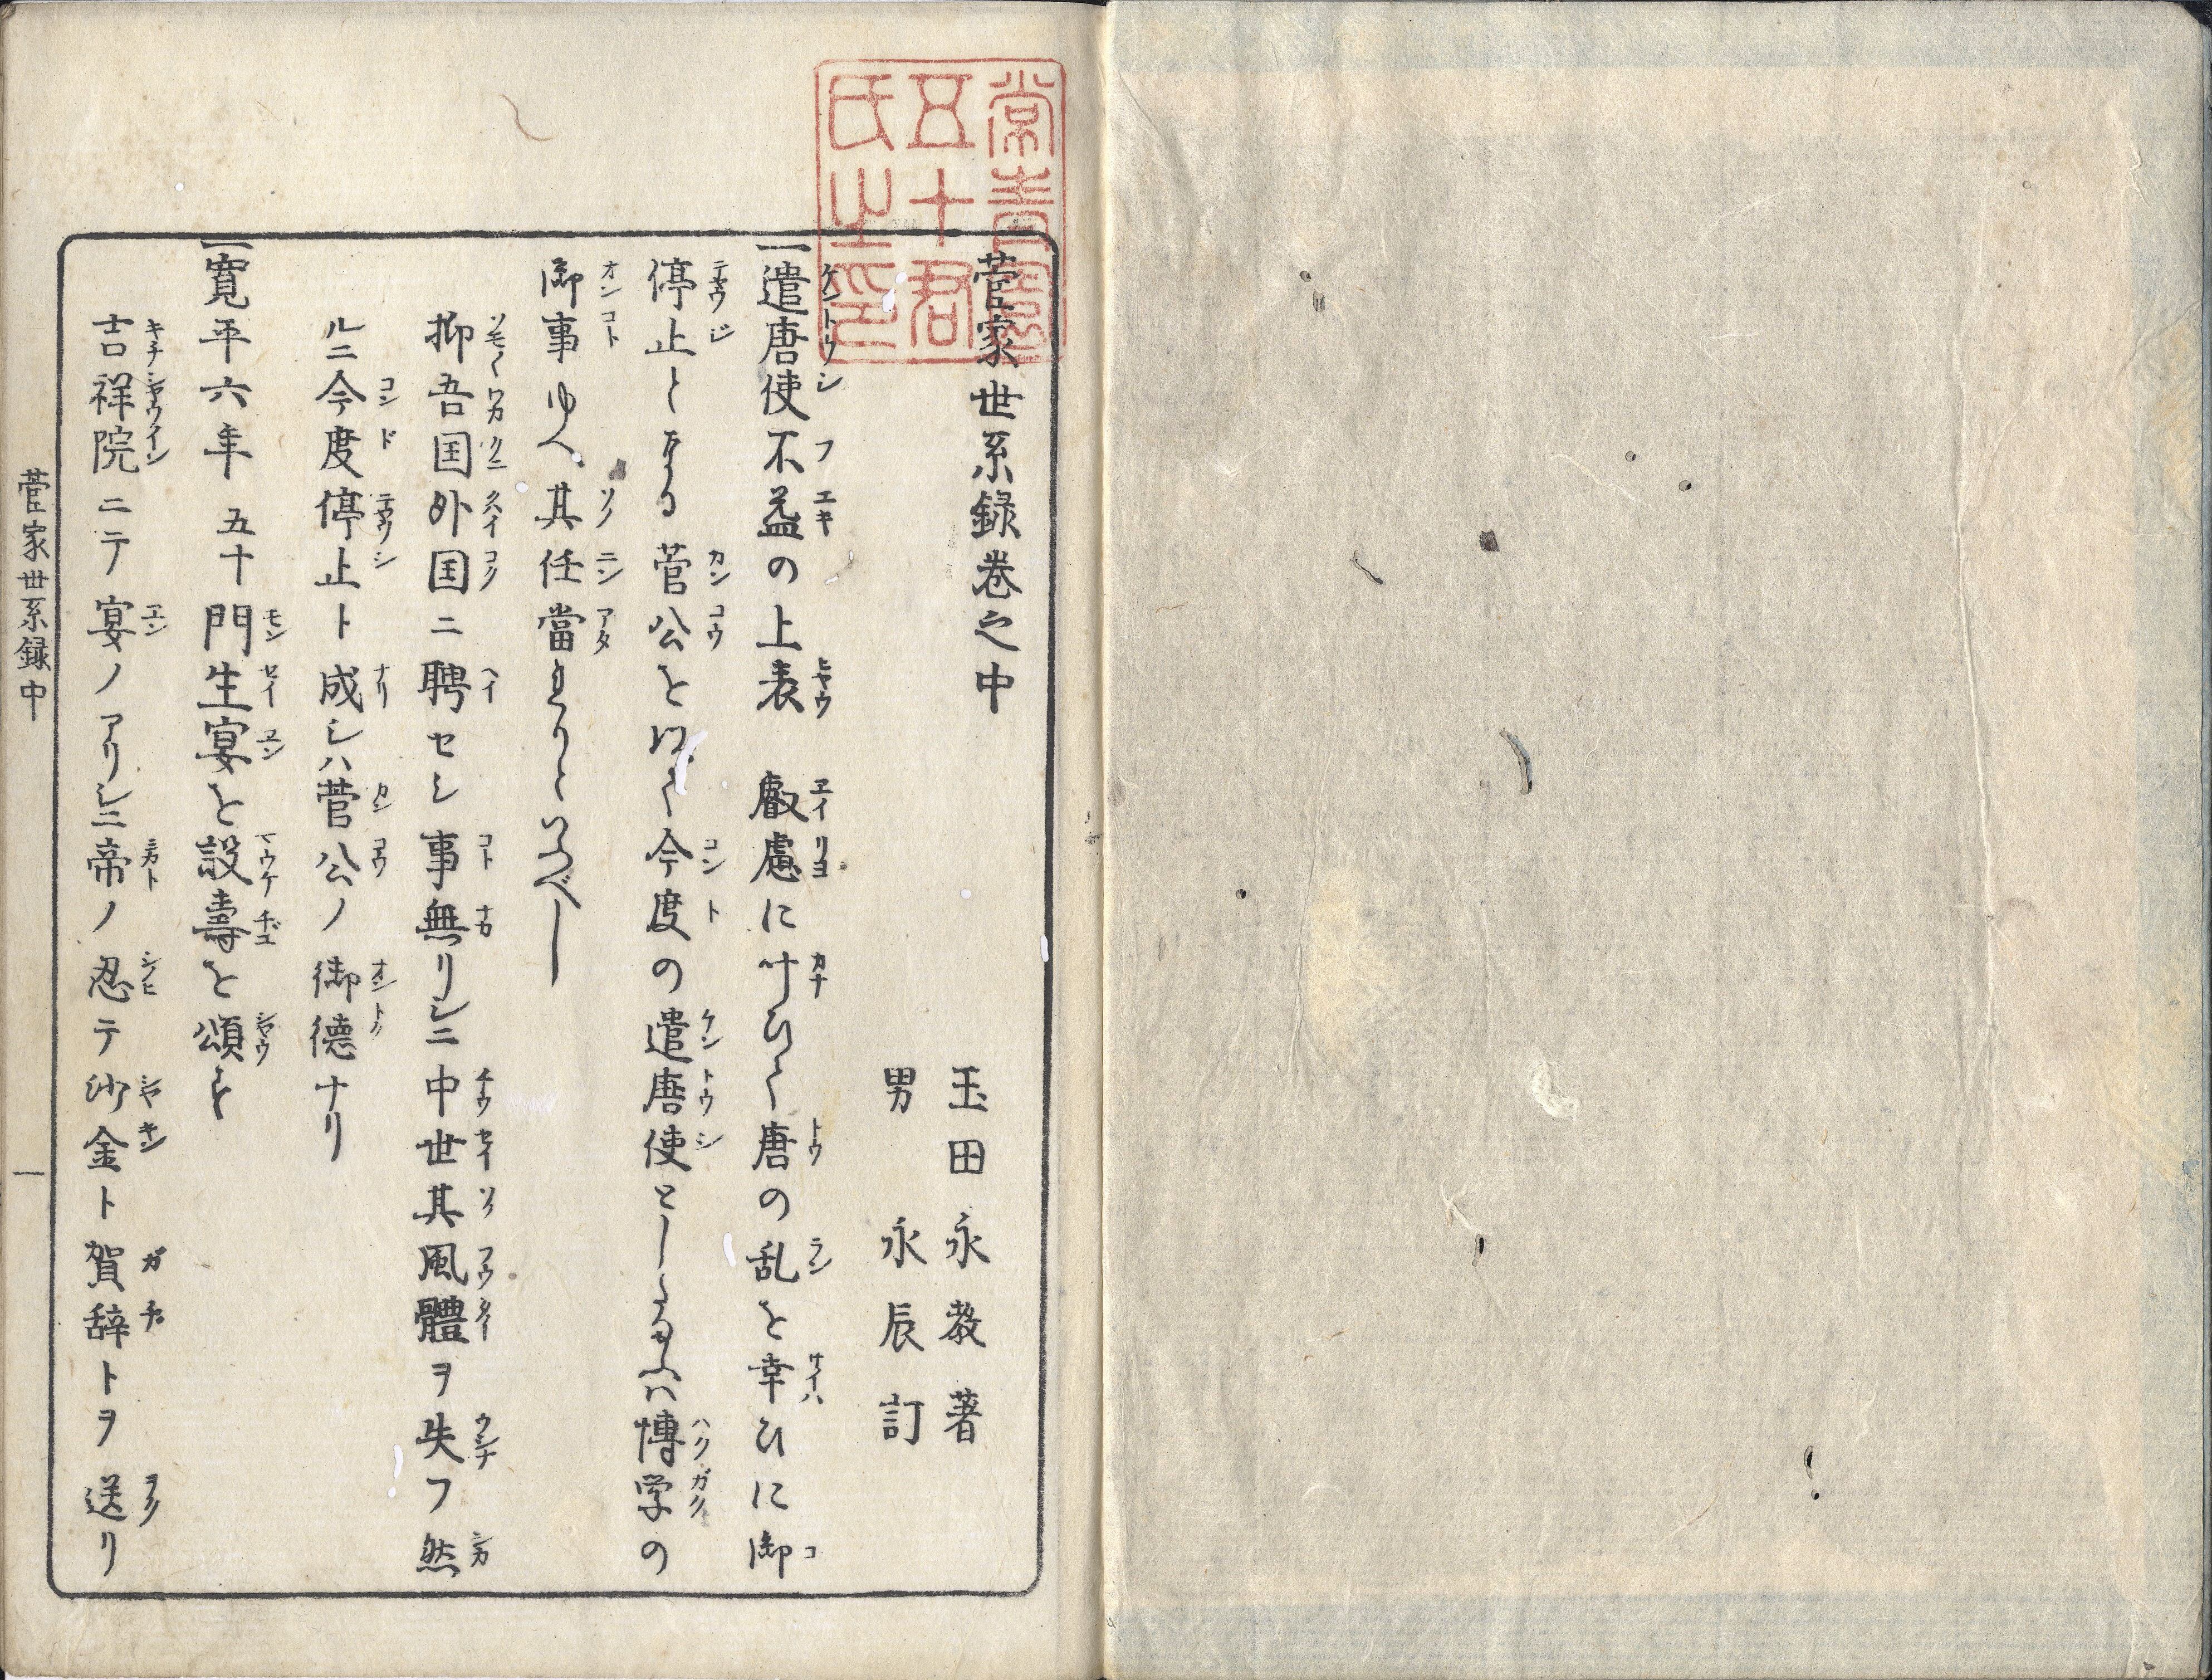 菅家世系録巻之中
玉田永教著
男　永辰訂
一遣唐使不益の上表　叡慮に叶ひて唐の乱を幸ひに御
停止となる菅公をはじめ今度の遣唐使としたまふハ博学の
御事ゆへ其任當れりといふべし
抑吾国外国ニ聘セシ事無リシニ中世其風體ヲ失フ然
ルニ今度停止ト成シハ菅公ノ御徳ナリ
一寛平六年五十門生宴を設壽を頌す
吉祥院ニテ宴ノアリシニ帝ノ忍テ沙金ト賀辞トヲ送リ
菅家世系録中
一
五十君
氏之印